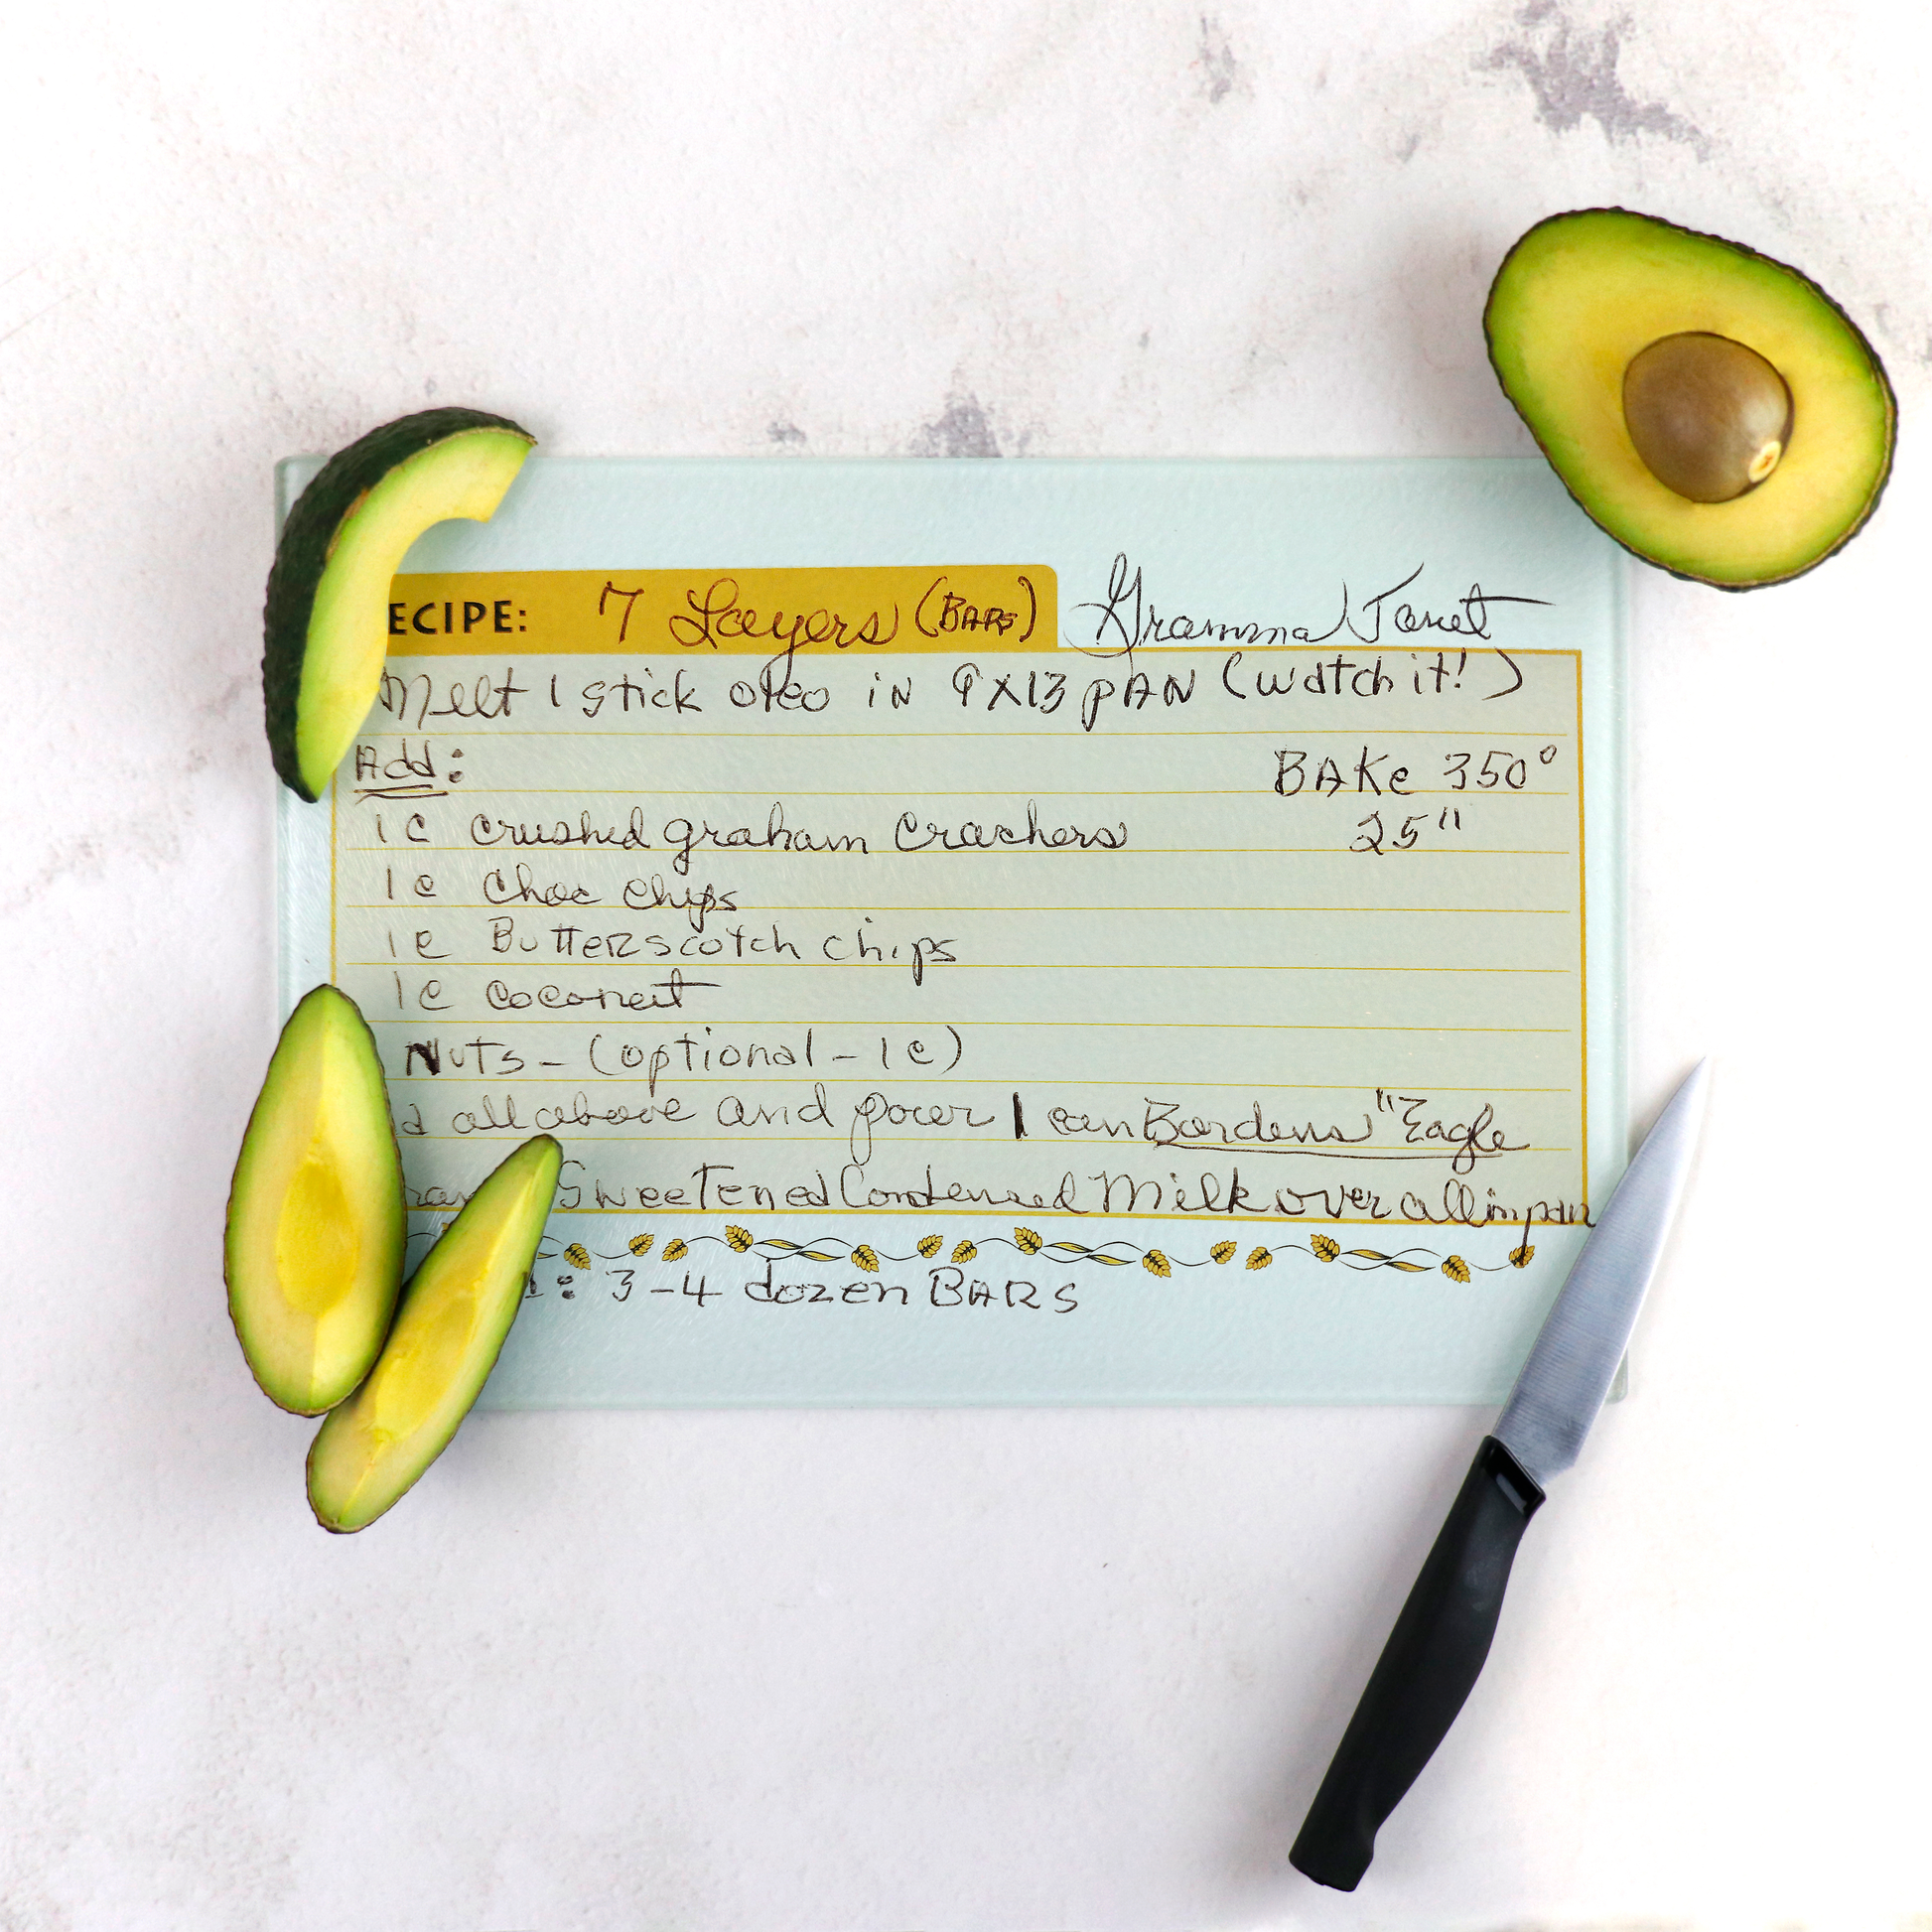 ECIPE: 7 Layers (BARS) Gramma Janet
Melt 1 stick oleo in 9X13 pAN (watch it!)
Add: BAKe 350°
1 c crushed graham crackers 25"
1 c choc chips
1 c Butterscotch chips
1 c coconut
Nuts - (optional - 1 c)
d all above and pour 1 can Bordens "Eagle
Sweetened Condensed Milk over all in pan
: 3-4 dozen BARS